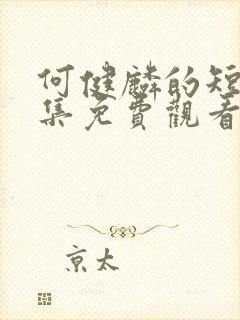 何健麟的短
集免費觀看
京太